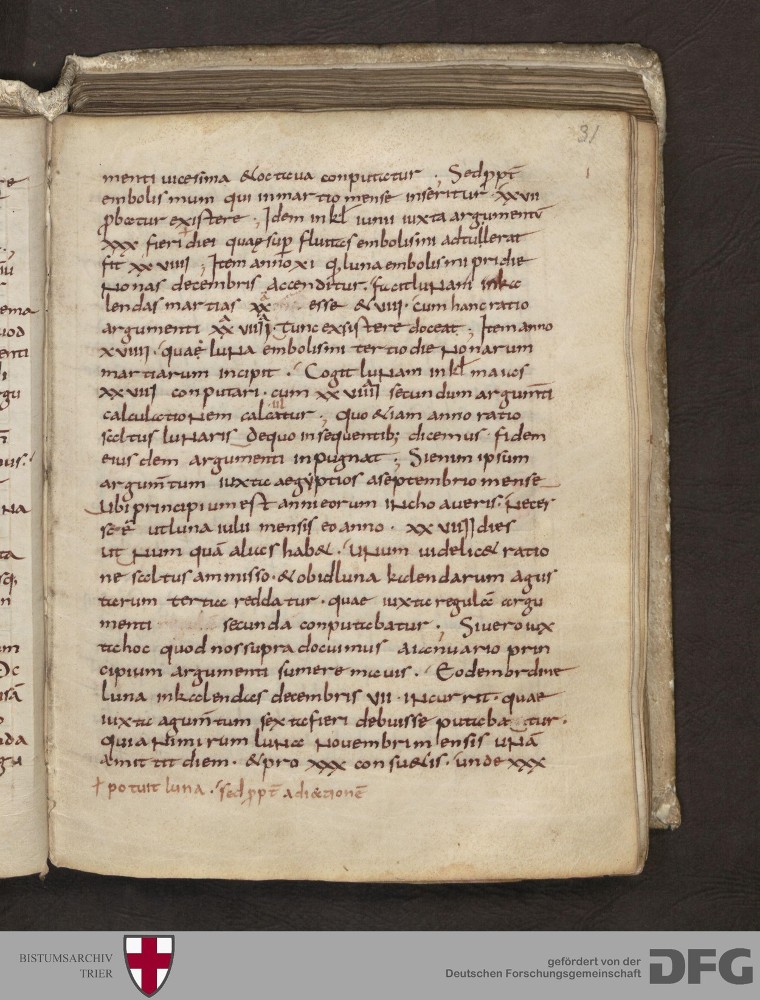 31
menti uicesima & octaua conputatur ; Sed ppt̄
embolismum qui in martio mense inseritur xxvii
p̱batur existere ; Idem in kl̄ iunii iuxta argumentū
xxx fieri diei quaę sup̱ fluitas embolismi adtullerat
fit xxviiii ; Item anno xi q, luna embolismi pridie
Nonas decembris accenditur, facit luNam in ka
lendas martias xx esse & viiii · cum hanc ratio
argumenti xxviiii · tunc exsistere doceat ; Item anno
xviiii · quae luNa embolismi tertio die Nonarum
martiarum incipit · Cogit luNam in kl̄ maias
xxviii conputari · cum xxviiii secundum argum̄ti
calculatioNem calcatur ; quo & iam anno ratio
saltus luNaris de quo in sequentib; dicemus · fidem
eius dem argumenti inpugnat ; Si enim ipsum
argum̄tum iuxta aegyptios a septembrio mense
ubi principium est anni eorum inchoaueris · Neces
se ē ut luna iulii mensis eo anno · xxviiii dies
ut Num quā alias hab& · uNum uidelic& ratio
ne saltus ammisso · & ob id luna kalendarum agus
tarum tertia reddatur · quae iuxta regulā argu
menti secunda conputabatur ; Si uero iux
ta hoc quod nos supra docuimus a ianuario prin
cipium argumenti sumere mauis · Eodem ordine
luna in kalendas decembris vii · incurrit · quae
iuxta agum̄tum sexta fieri debuisse putabatur ·
quia Nimirum luna Nouembri mensis unā
amittit diem · & pro xxx consu&is · unde xxx
† potuit luna · sed ppt̄ adi&ionē
BISTUMSARCHIV
TRIER
gefördert von der
Deutschen Forschungsgemeinschaft
DFG